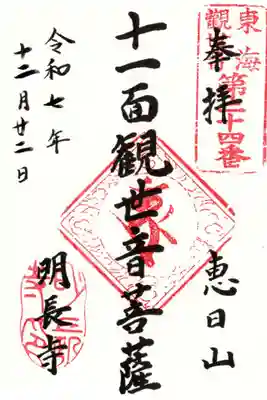 奉拝
東海
第二十四番
恵日山
十一面観世音菩薩
令和七年
十二月廿二日
明長寺